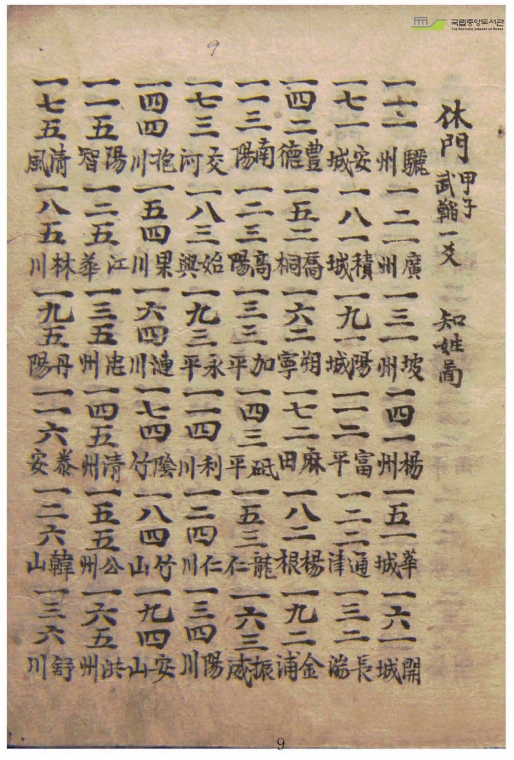 국립중앙도서관
THE NATIONAL LIBRARY OF KOREA
9
休門 甲子 武 一爻 知姓啚
一一一 驪州 一二一 廣州 一三一 坡州 一四一 楊州 一五一 華城 一六一 開城
一七一 安城 一八一 積城 一九一 陽城 一一二 富平 一二二 通津 一三二 長湍
一四二 豊德 一五二 喬桐 一六二 朔寧 一七二 麻田 一八二 楊根 一九二 金浦
一一三 南陽 一二三 高陽 一三三 加平 一四三 砥平 一五三 龍仁 一六三 振威
一七三 交河 一八三 始興 一九三 永平 一一四 利川 一二四 仁川 一三四 陽川
一四四 抱川 一五四 果川 一六四 漣川 一七四 陰竹 一八四 竹山 一九四 安山
一一五 陽智 一二五 江華 一三五 忠州 一四五 清州 一五五 公州 一六五 洪州
一七五 清風 一八五 林川 一九五 丹陽 一一六 泰安 一二六 韓山 一三六 舒川
9